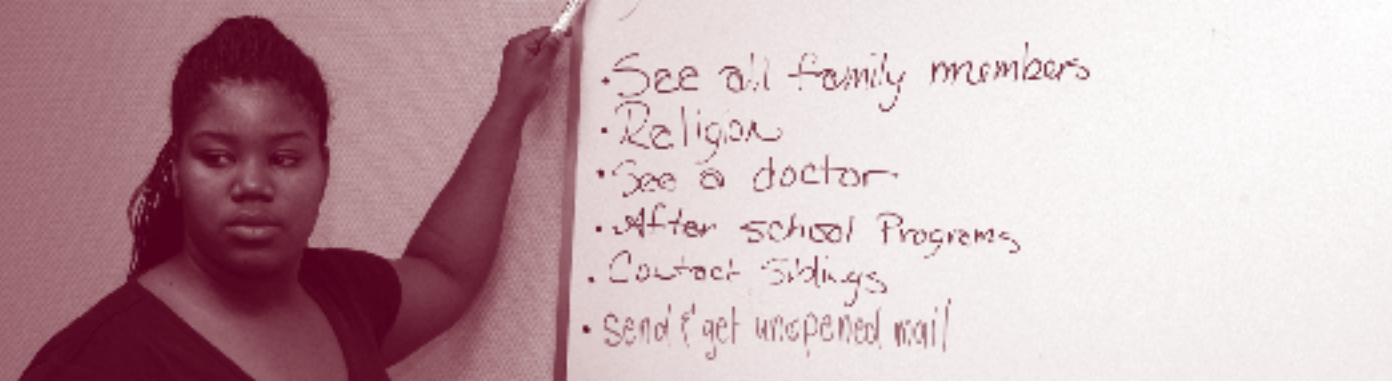 · See all family members
· Religion
· See a doctor
· After school Programs
· Contact Siblings
· Send & get unopened mail